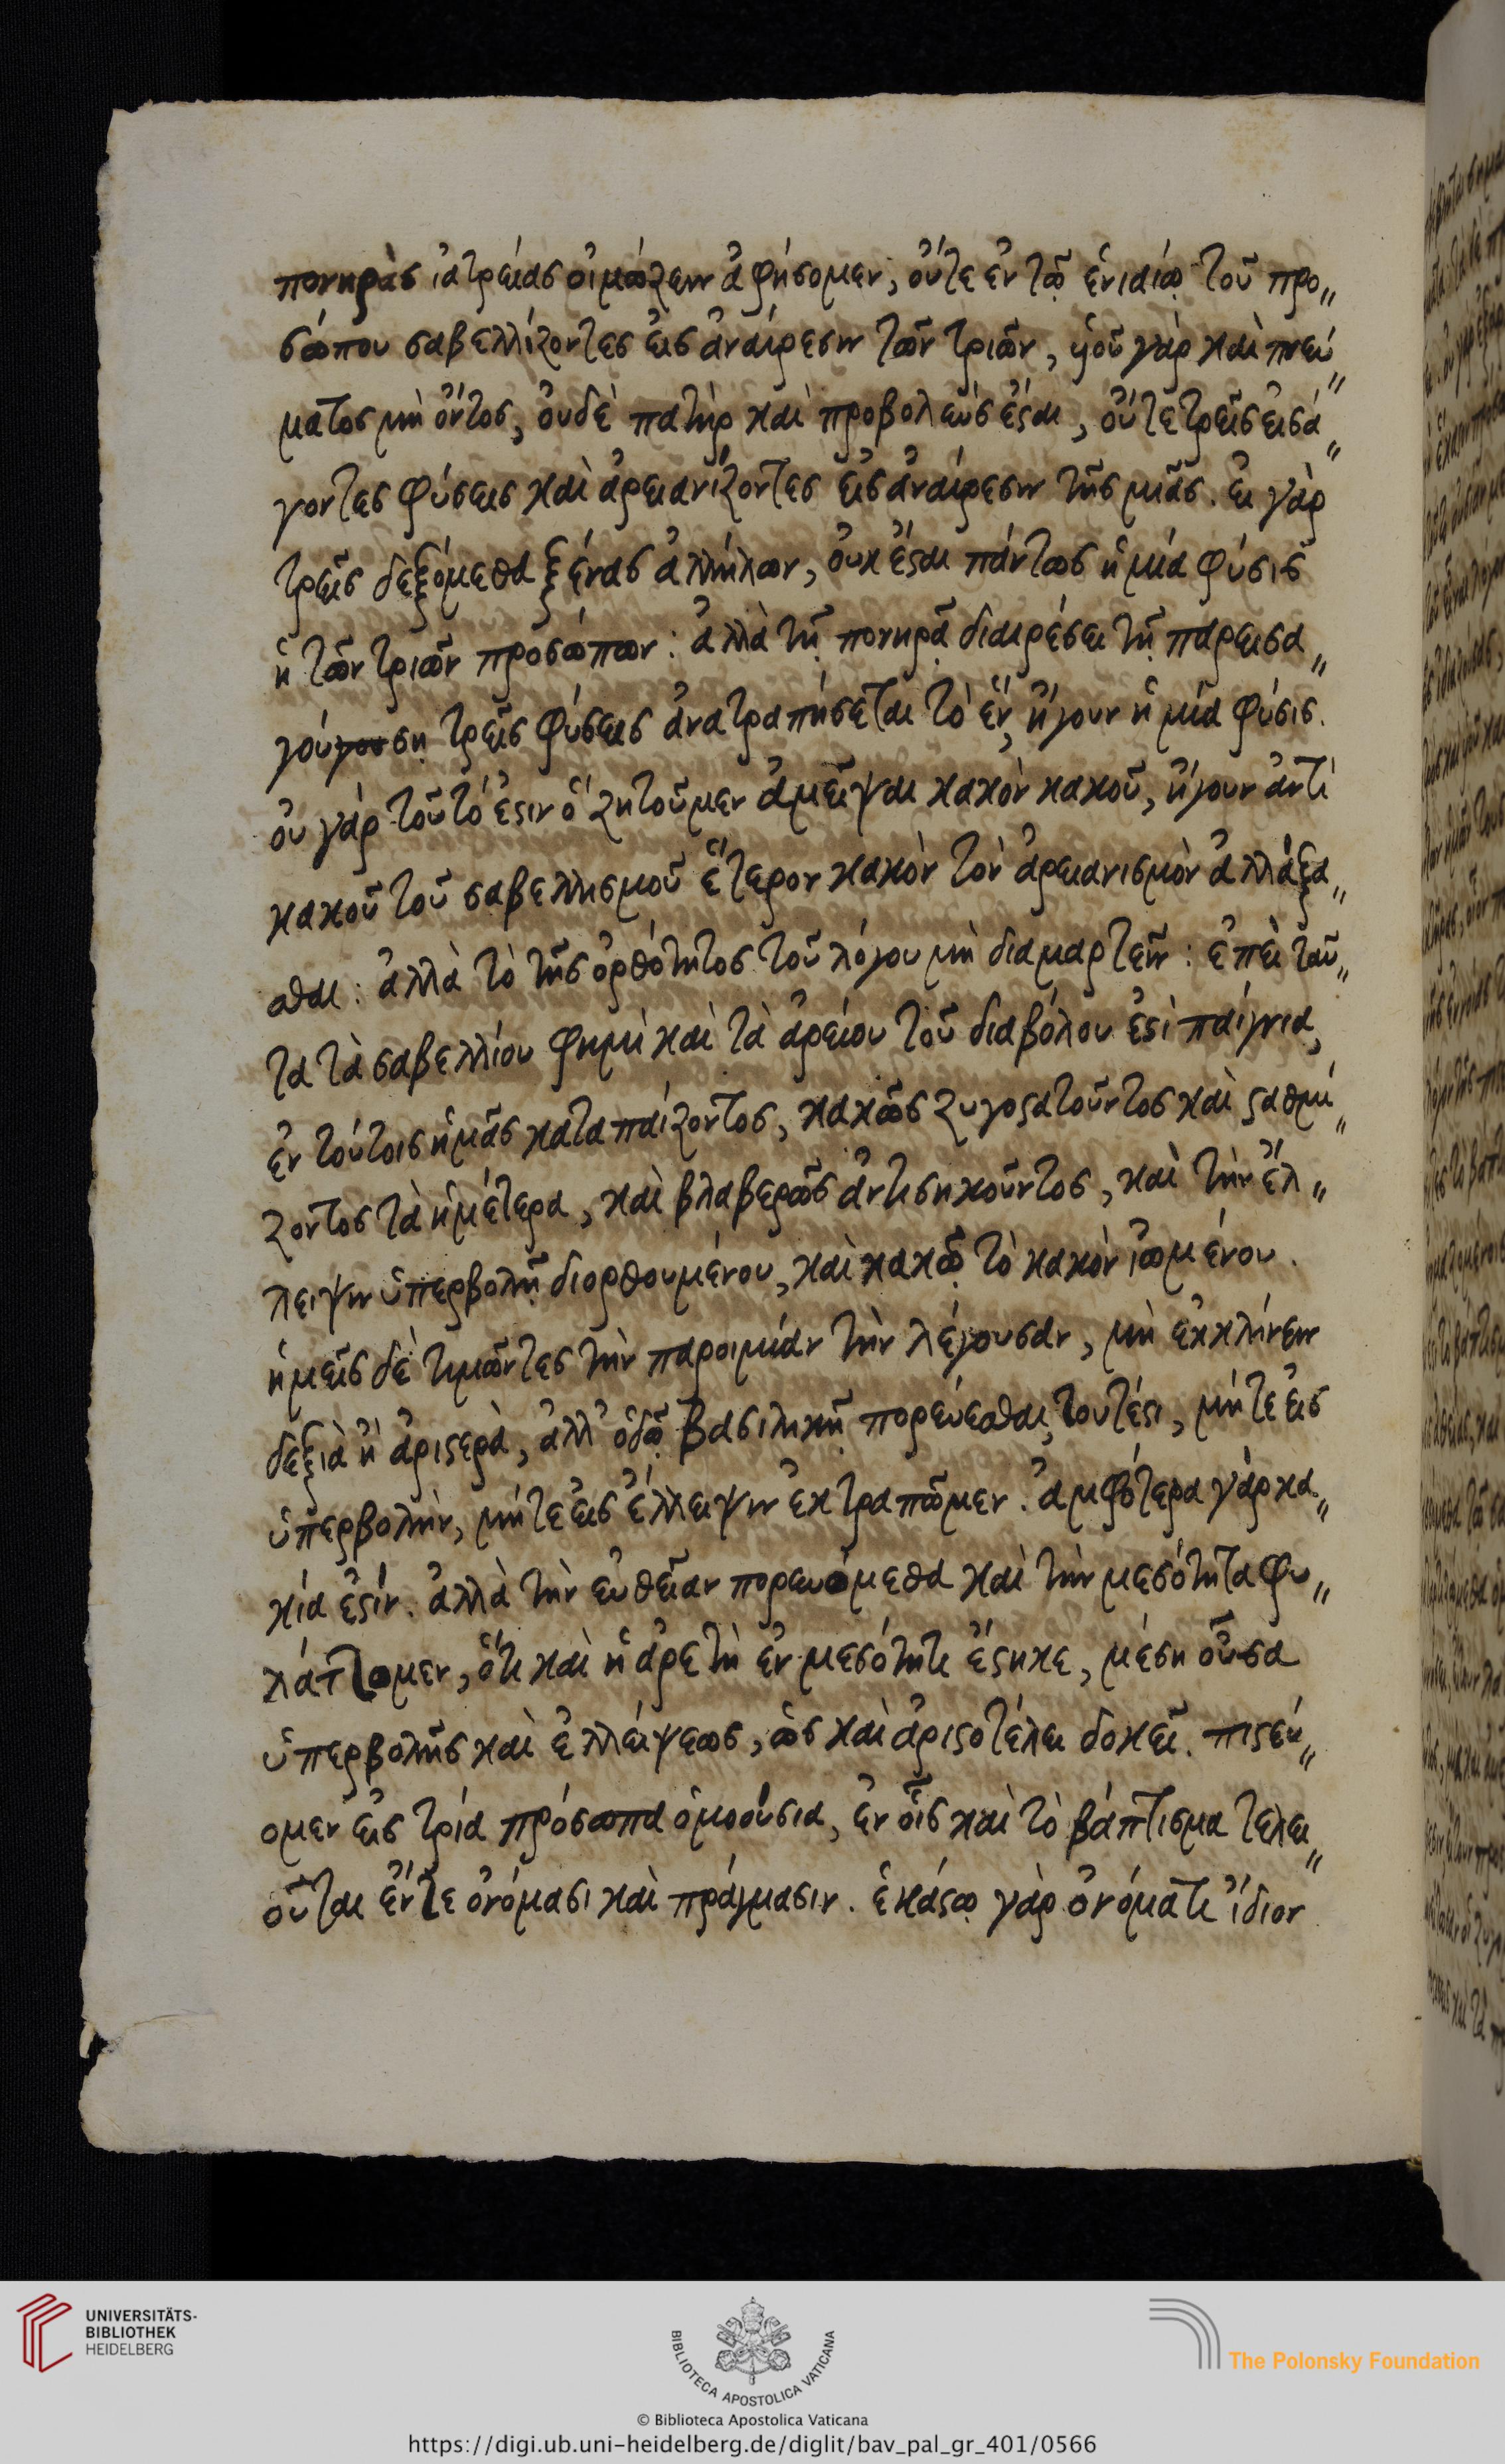 πονηρὰς ἰατρείας οἰμώζειν ἀφήσομεν, οὔτε ἐν τῷ ἑνιαίῳ τοῦ προ„
σώπου σαβελλίζοντες εἰς ἀναίρεσιν τῶν τριῶν, υἱοῦ γὰρ καὶ πνεύ„
ματος μὴ ὄντος, οὐδὲ πατὴρ καὶ προβολεὺς ἔσται, οὔτε τρεῖς εἰσά„
γοντες φύσεις καὶ ἀρειανίζοντες εἰς ἀναίρεσιν τῆς μιᾶς. εἰ γὰρ
τρεῖς δεξόμεθα ξένας ἀλλήλων, οὐκ ἔσται πάντως ἡ μία φύσις
ἡ τῶν τριῶν προσώπων: ἀλλὰ τῇ πονηρᾷ διαιρέσει τῇ παρεισα„
γούγουσῃ τρεῖς φύσεις ἀνατραπήσεται τὸ ἕν, ἤγουν ἡ μία φύσις.
οὐ γὰρ τοῦτό ἐστιν ὃ ζητοῦμεν ἀμεῖψαι κακὸν κακοῦ, ἤγουν ἀντὶ
κακοῦ τοῦ σαβελλισμοῦ ἕτερον κακὸν τὸν ἀρειανισμὸν ἀλλάξα„
σθαι: ἀλλὰ τὸ τῆς ὀρθότητος τοῦ λόγου μὴ διαμαρτεῖν: ἐπεὶ ταῦ„
τα τὰ σαβελλίου φημὶ καὶ τὰ ἀρείου τοῦ διαβόλου ἐστὶ παίγνια,
ἐν τούτοις ἡμᾶς καταπαίζοντος, κακῶς ζυγοστατοῦντος καὶ σταθμί„
ζοντος τὰ ἡμέτερα, καὶ βλαβερῶς ἀντισηκοῦντος, καὶ τὴν ἔλ„
λειψιν ὑπερβολῇ διορθουμένου, καὶ κακῷ τὸ κακὸν ἰωμένου.
ἡμεῖς δὲ τιμῶντες τὴν παροιμίαν τὴν λέγουσαν, μὴ ἐκκλίνειν
δεξιὰ ἢ ἀριστερὰ, ἀλλ' ὁδῷ βασιλικῇ πορεύεσθαι, τουτέστι, μήτε εἰς
ὑπερβολὴν, μήτε εἰς ἔλλειψιν ἐκτραπῶμεν. ἀμφότερα γὰρ κα„
κία ἐστίν. ἀλλὰ τὴν εὐθεῖαν πορευόμεθα καὶ τὴν μεσότητα φυ„
λάττομεν, ὅτι καὶ ἡ ἀρετὴ ἐν μεσότητι ἔστηκε, μέση οὖσα
ὑπερβολῆς καὶ ἐλλείψεως, ὡς καὶ ἀριστοτέλει δοκεῖ. πιστεύ„
ομεν εἰς τρία πρόσωπα ὁμοούσια, ἐν οἷς καὶ τὸ βάπτισμα τελει„
οῦται ἔν τε ὀνόμασι καὶ πράγμασιν. ἑκάστῳ γὰρ ὀνόματι ἴδιον
UNIVERSITÄTS-
BIBLIOTHEK
HEIDELBERG
BIBLIOTECA APOSTOLICA VATICANA
The Polonsky Foundation
© Biblioteca Apostolica Vaticana
https://digi.ub.uni-heidelberg.de/diglit/bav_pal_gr_401/0566